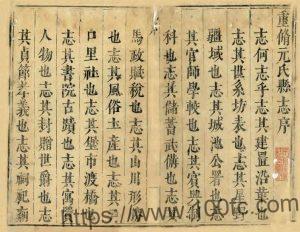 重脩元氏縣志序
志何志乎志其建置沿革也
志其世系坊表也志其星
疆域也志其城池公署也志
其官師學較也志其賓興制
科也志其儲蓄武備也志
馬政賦稅也志其山川形
也志其風俗土產也志其
口里社也志其堡市渡橋也
志其書院古蹟也志其寓賢
人物也志其封贈世爵也志
其貞節孝義也志其祠祀廟